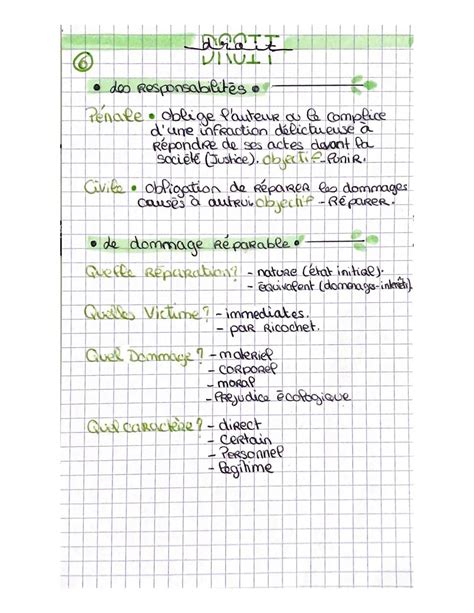 DROIT
droit
6
• des Responsabilités •
Pénale • oblige l'auteur ou le complice
d'une infraction délictueuse à
RÉPONDRE de ses actes devant la
société (Justice). objectif - Punir.
Civile • obligation de RÉPARER les dommages
causés à autrui objectif - RÉPARER.
• de dommage RÉPARABLE •
Quelle RÉPARATION? - nature (état initial).
- équivalent (dommages-intérêts).
Quelles Victime? - immédiates.
- par RICOCHET.
Quel Dommage? - matériel
- CORPOREL
- moral
- Préjudice Écologique
Quel caractère? - direct
- Certain
- Personnel
- légitime